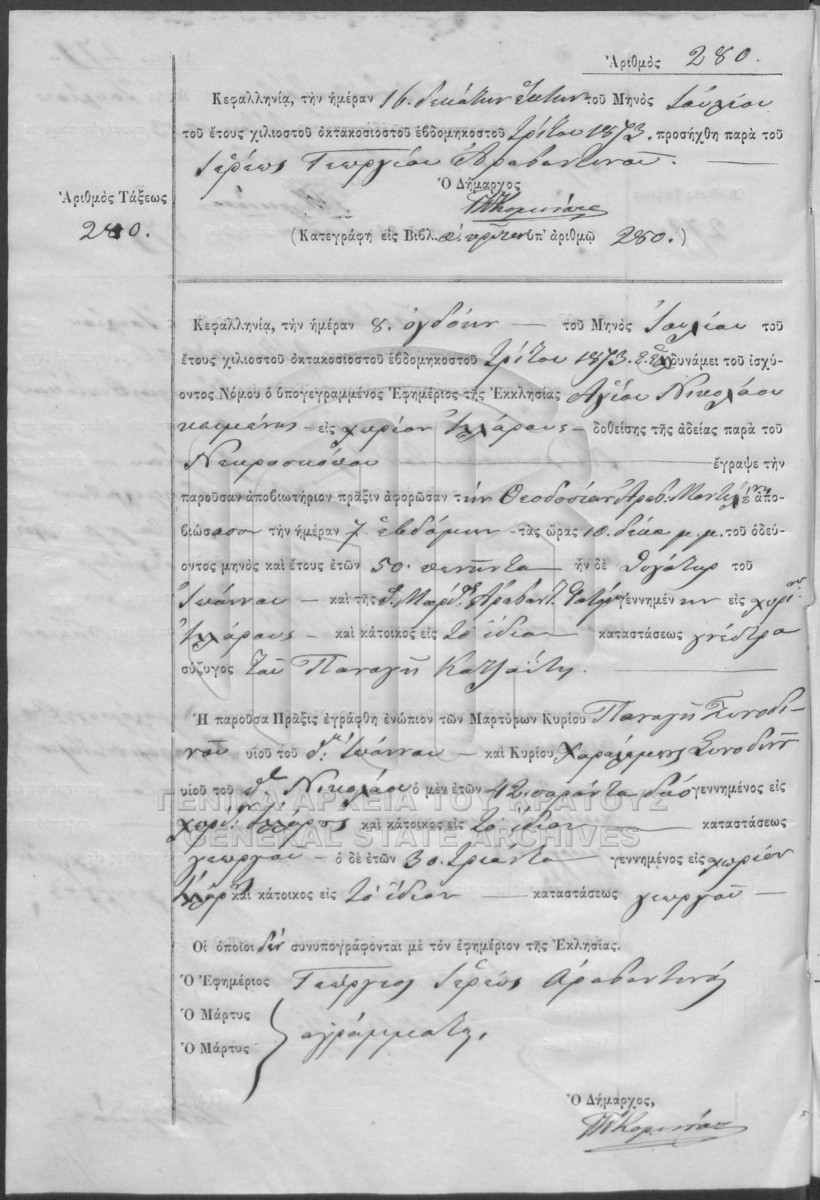 Ἀριθμὸς 280.
Κεφαλληνίᾳ, τὴν ἡμέραν 16 δεκάτην ἕκτην τοῦ Μηνὸς Ἰουλίου
τοῦ ἔτους χιλιοστοῦ ὀκτακοσιοστοῦ ἑβδομηκοστοῦ τρίτου 1873. προσήχθη παρὰ τοῦ
Ἱερέως Γεωργίου Ἀραβαντινοῦ.
Ὁ Δήμαρχος
Ἀριθμὸς Τάξεως
280.
(Κατεγράφη εἰς Βιβλ. πρῶτον ὑπ' ἀριθμῷ 280.)
Κεφαλληνίᾳ, τὴν ἡμέραν 8. ὀγδόην τοῦ Μηνὸς Ἰουλίου τοῦ
ἔτους χιλιοστοῦ ὀκτακοσιοστοῦ ἑβδομηκοστοῦ τρίτου 1873. δυνάμει τοῦ ἰσχύ-
οντος Νόμου ὁ ὑπογεγραμμένος Ἐφημέριος τῆς Ἐκκλησίας Ἁγίου Νικολάου
κειμένης εἰς χωρίον δοθείσης τῆς ἀδείας παρὰ τοῦ
Νεκροσκόπου ἔγραψε τὴν
παροῦσαν ἀποβιωτήριον πρᾶξιν ἀφορῶσαν τὴν Θεοδοσίαν ἀπο-
βιώσασα τὴν ἡμέραν 7 ἑβδόμην τὰς ὥρας 10. δέκα μ.μ. τοῦ ὁδεύ-
οντος μηνὸς καὶ ἔτους ἐτῶν 50. πενῆντα ἦν δὲ θυγάτηρ τοῦ
Ἰωάννου καὶ τῆς γεννημένην εἰς χωρίον
καὶ κάτοικος εἰς τὸ ἴδιον καταστάσεως
σύζυγος τοῦ Παναγῆ Κατσαΐτη.
Ἡ παροῦσα Πρᾶξις ἐγράφθη ἐνώπιον τῶν Μαρτύρων Κυρίου Παναγῆ Συνοδι-
νοῦ υἱοῦ τοῦ Ἰωάννου καὶ Κυρίου Χαραλάμπους Συνοδινοῦ
υἱοῦ τοῦ Νικολάου ὁ μὲν ἐτῶν 42. σαράντα δύο γεννημένος εἰς
χωρίον καὶ κάτοικος εἰς τὸ ἴδιον καταστάσεως
γεωργοῦ ὁ δὲ ἐτῶν 30. τριάντα γεννημένος εἰς χωρίον
καὶ κάτοικος εἰς τὸ ἴδιον καταστάσεως γεωργοῦ
Οἱ ὁποῖοι δέν συνυπογράφονται μὲ τὸν ἐφημέριον τῆς Ἐκλησίας.
Ὁ Ἐφημέριος Γεώργιος Ἱερεὺς Ἀραβαντινός
Ὁ Μάρτυς
Ὁ Μάρτυς ἀγράμματοι.
Ὁ Δήμαρχος,
ΓΕΝΙΚΑ ΑΡΧΕΙΑ ΤΟΥ ΚΡΑΤΟΥΣ
GENERAL STATE ARCHIVES